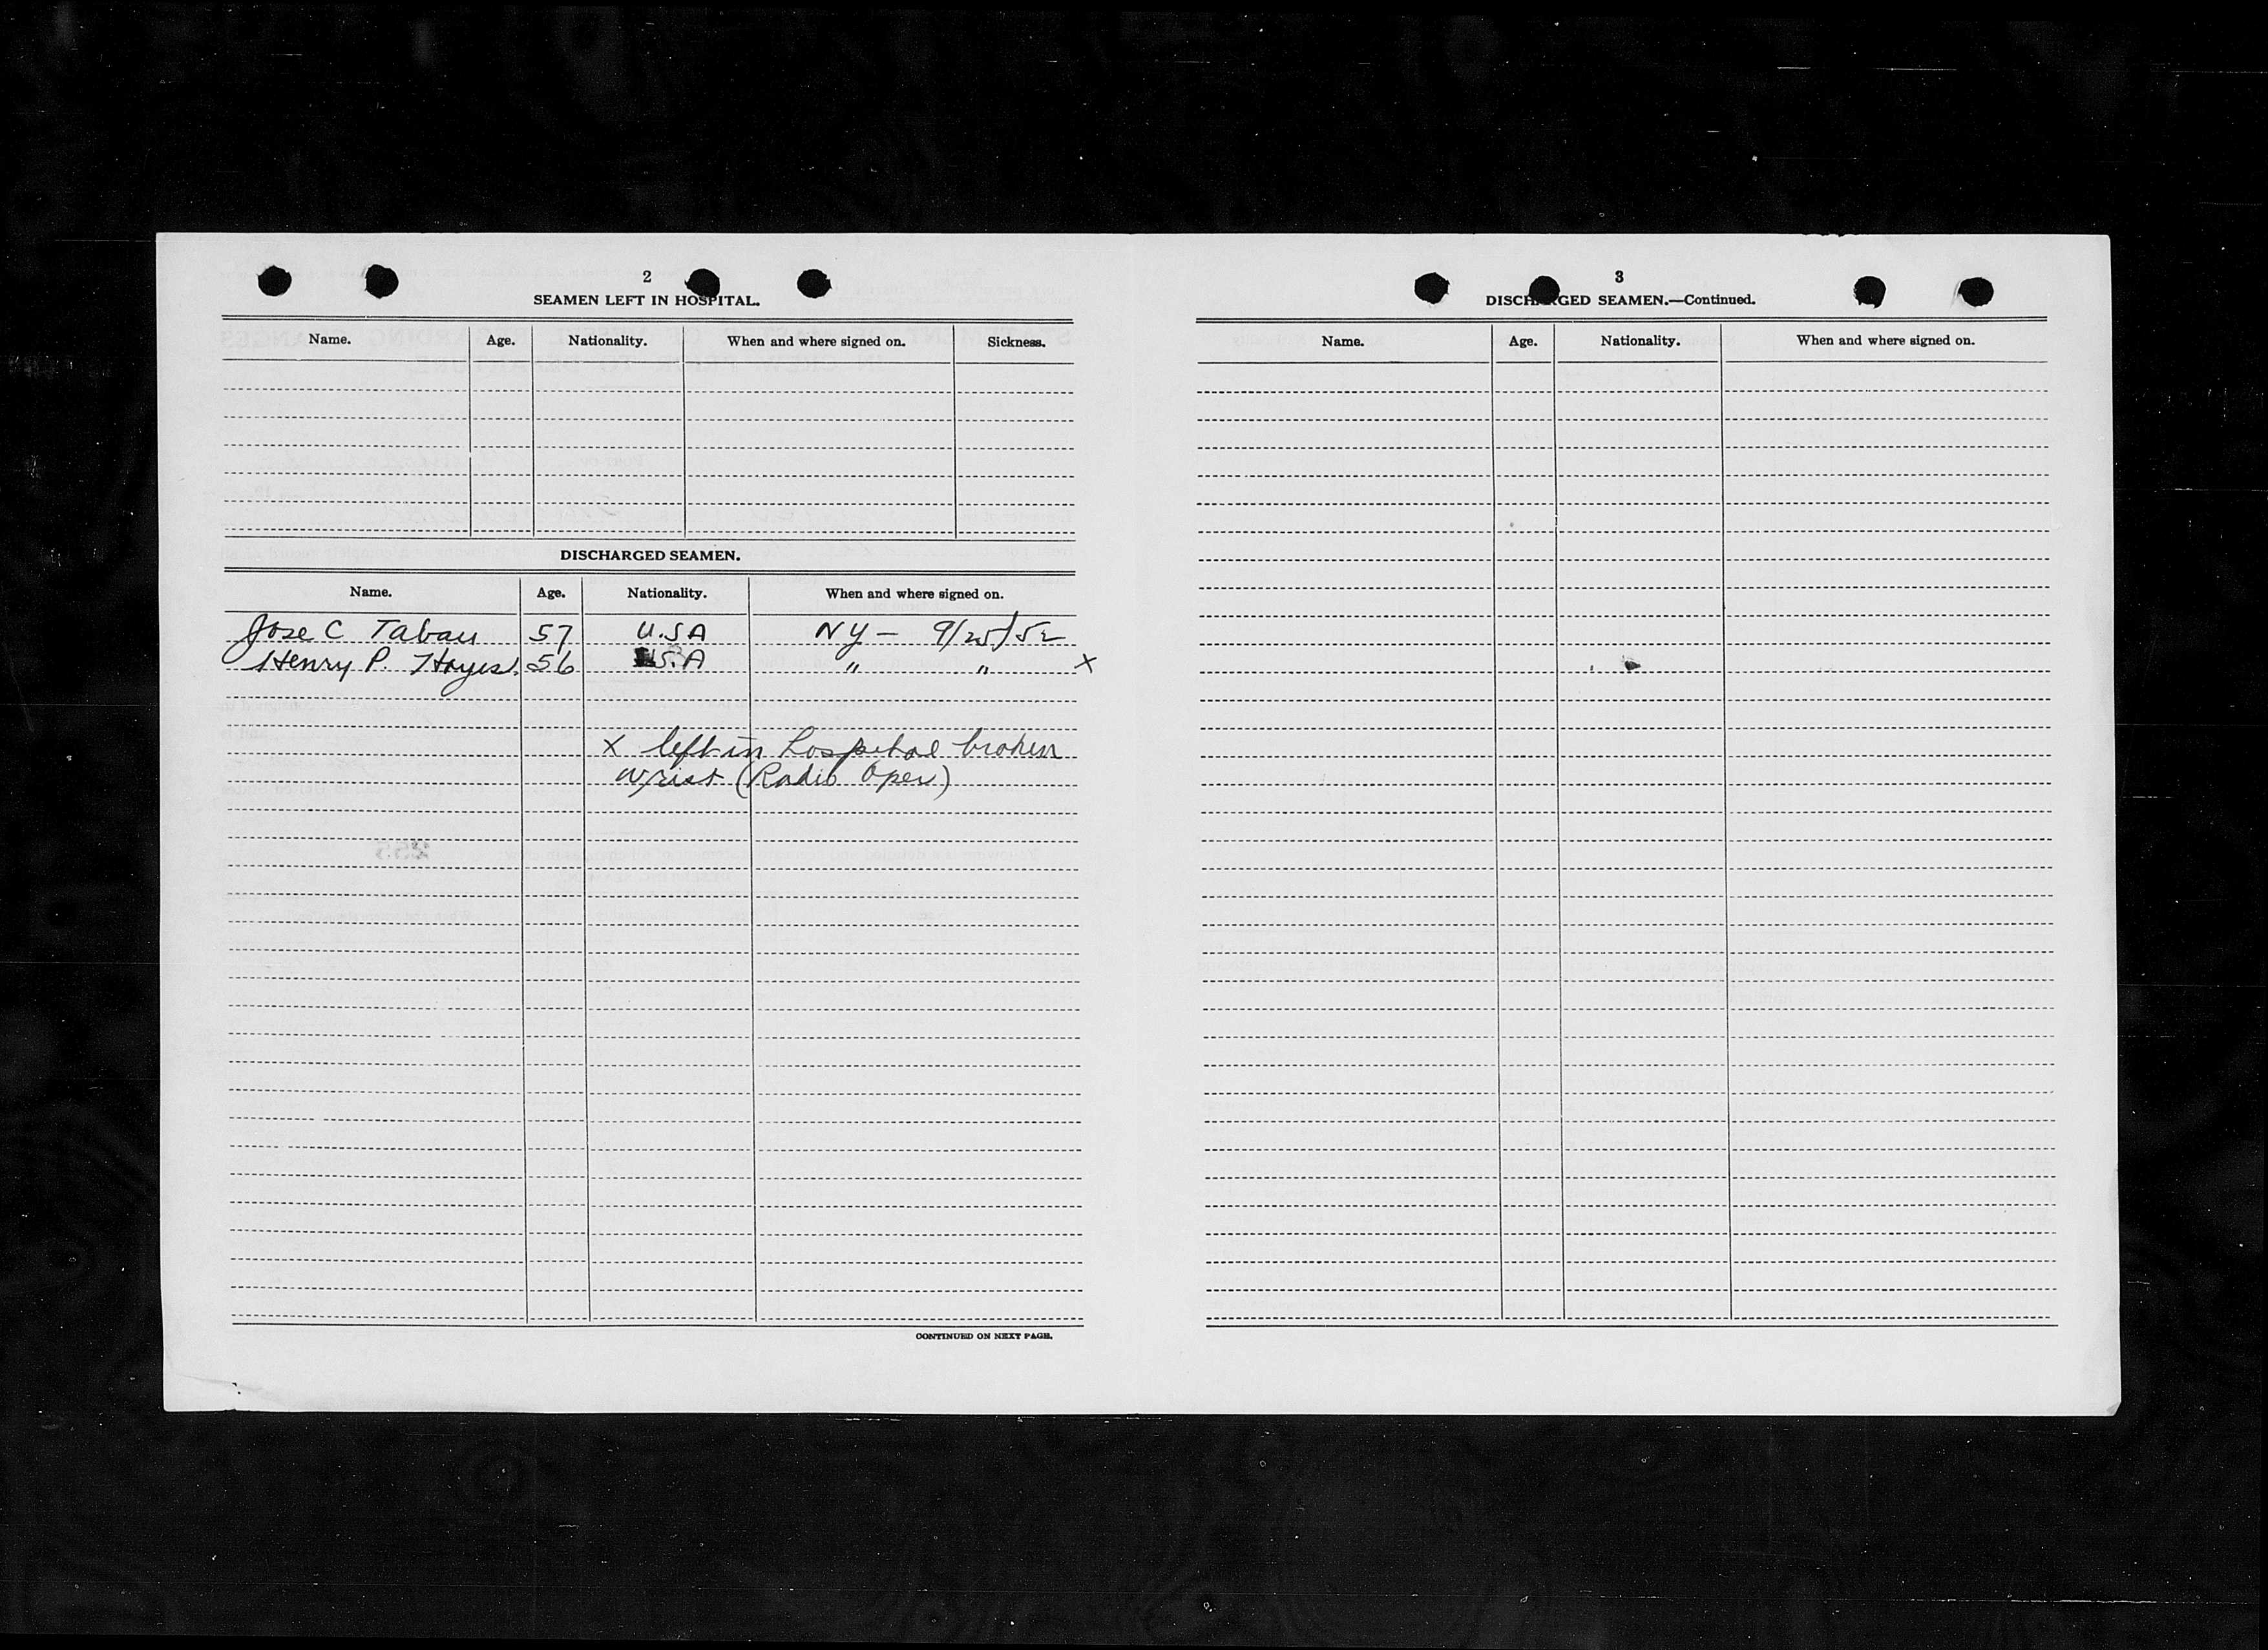 2
SEAMEN LEFT IN HOSPITAL.
Name. Age. Nationality. When and where signed on. Sickness.
DISCHARGED SEAMEN.
Name. Age. Nationality. When and where signed on.
Jose C Tabau 57 U.S.A NY - 9/25/52
Henry P. Hayes. 56 U.S.A " " X
X left in hospital broken
wrist (Radio Oper)
CONTINUED ON NEXT PAGE.
3
DISCHARGED SEAMEN.—Continued.
Name. Age. Nationality. When and where signed on.